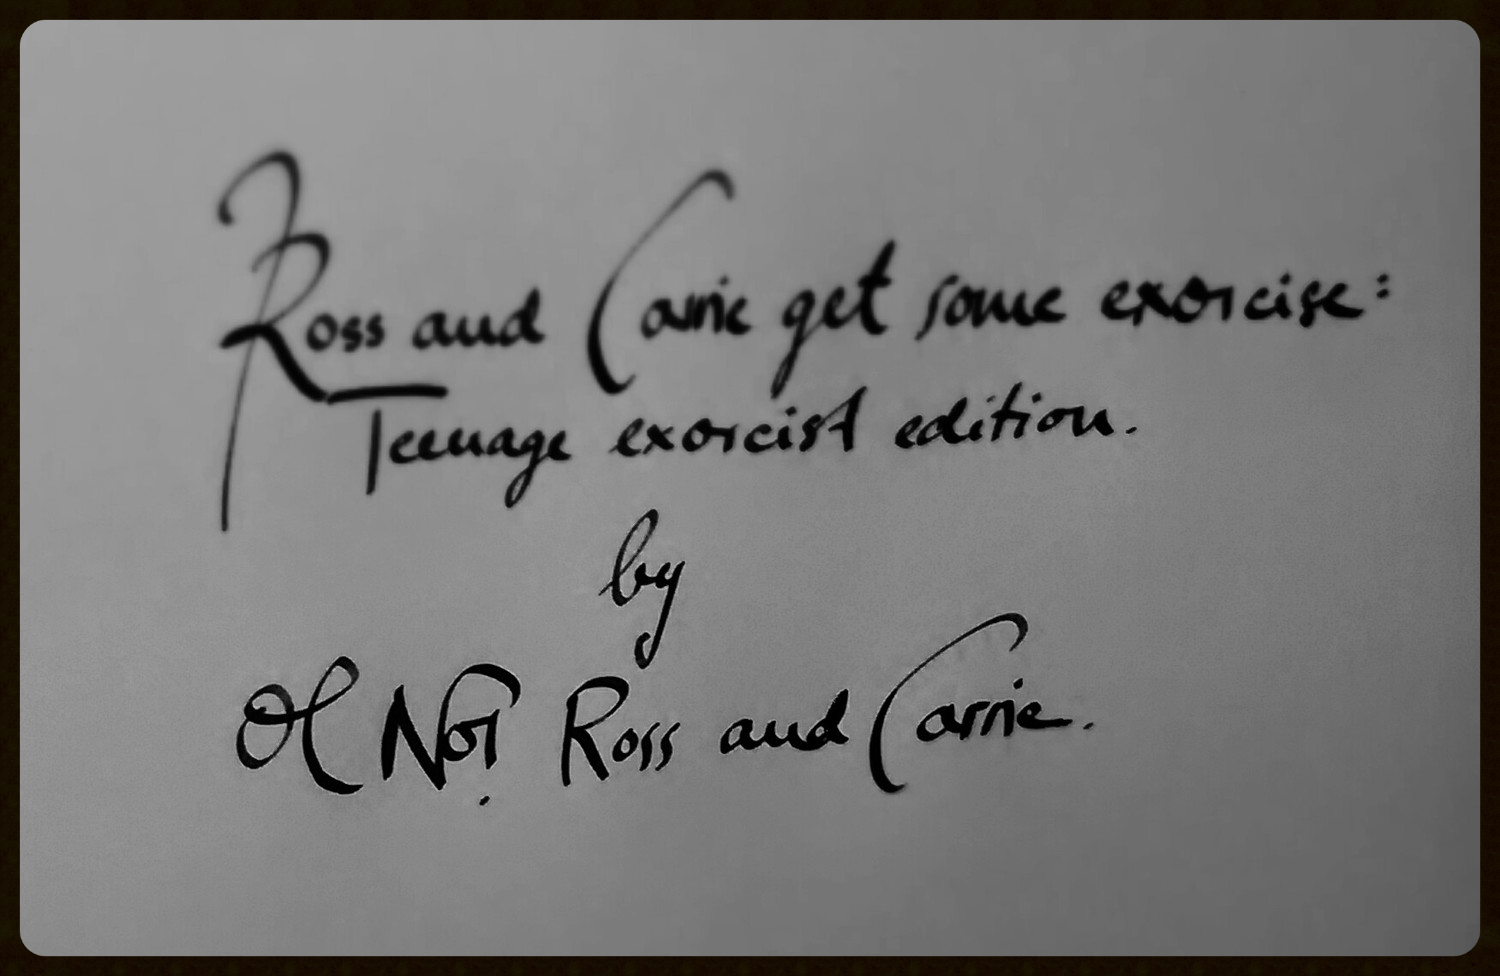 Ross and Carrie get some exorcise:
Teenage exorcist edition.
by
Oh No! Ross and Carrie.